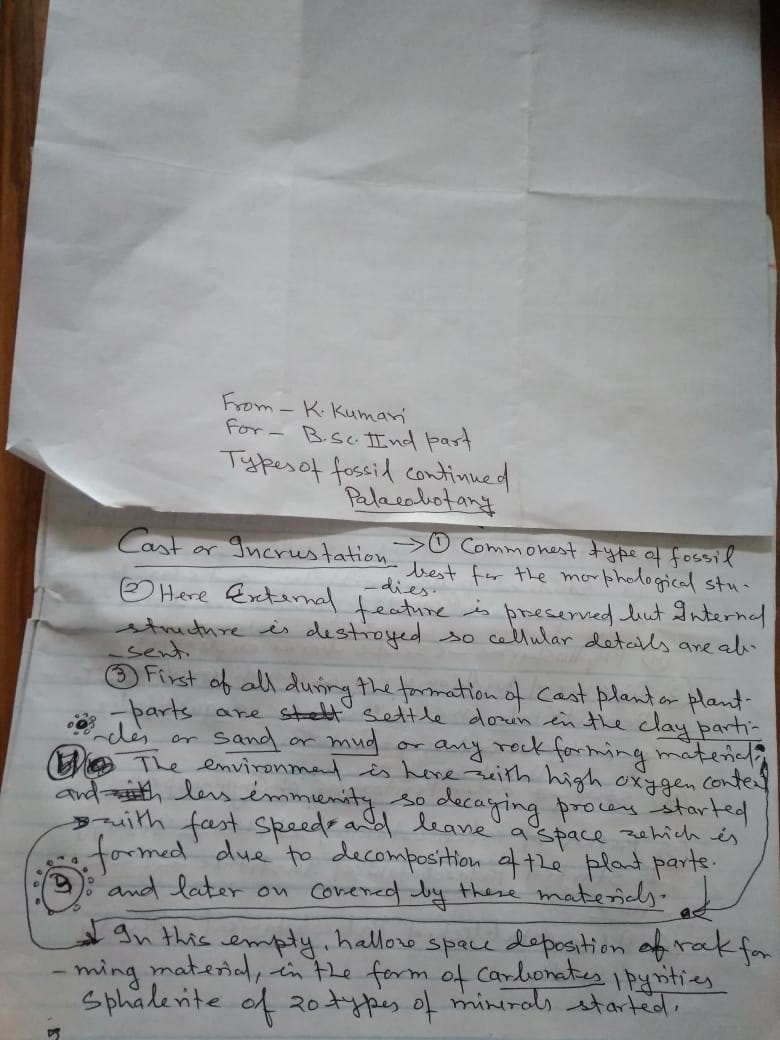 From - K. Kumari
For - B.Sc. IInd part
Types of fossil continued
Palaeobotany
Cast or Incrustation → ① Commonest type of fossil
best for the morphological stu-
-dies.
② Here External feature is preserved but Internal
structure is destroyed so cellular details are ab-
-sent.
③ First of all during the formation of cast plant or plant-
-parts are settle down in the clay parti-
-cles or sand or mud or any rock forming material,
The environment is here with high oxygen conten
and less immunity so decaying process started
with fast speed and leave a space which is
formed due to decomposition of the plant parts.
and later on covered by these materials.
In this empty, hallow space deposition of rock for
-ming material, in the form of carbonates, pyrities
Sphalerite of 20 types of minerals started.